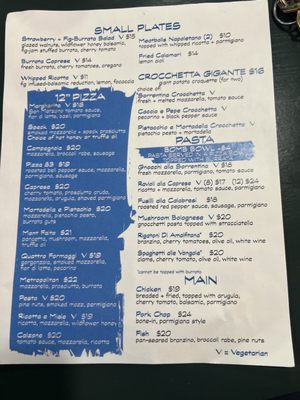 SMALL PLATES
Strawberry + Fig-Burrata Salad V $15
glazed walnuts, wildflower honey balsamic,
fig-jam stuffed burrata, cherry tomato
Burrata Caprese V $14
fresh burrata, cherry tomatoes, oregano
Whipped Ricotta V $11
fig infused-balsamic reduction, lemon, focaccia
Meatballs Napoletana (2) $10
topped with whipped ricotta + parmigiano
Fried Calamari $14
lemon aioli
CROCCHETTA GIGANTE $16
giant potato croquette (for two)
choice of
Sorrentina Crocchetta V
fresh + melted mozzarella, tomato sauce
Cacio e Pepe Crocchetta V
pecorino + black pepper sauce
Pistacchio e Mortadella Crocchetta
pistachio pesto + mortadella
12" PIZZA
Margherita V $18
San Marzano tomato sauce,
fior di latte, basil, parmigiano
Speck $20
smoked mozzarella + speck prosciutto
Choice of hot honey or truffle oil
Campagnola $20
mozzarella, broccoli rabe, sausage
Pizza 28 $19
roasted bell pepper sauce, mozzarella,
parmigiano, sausage
Caprese $20
cherry tomatoes, prosciutto crudo,
mozzarella, arugula, shaved parmigiano
Mortadella e Pistachio $20
mozzarella, pistachio pesto,
burrata puffs
Mont Faito $21
pancetta, mushroom, mozzarella,
truffle oil
Quattro Formaggi V $19
gorgonzola, smoked mozzarella,
fior di latte, pecorino
Metropolitan $22
mozzarella, prosciutto, burrata
Pesto V $20
pine nuts, smoked mozz, parmigiano
Ricotta e Miele V $19
ricotta, mozzarella, wildflower honey
Calzone $20
tomato sauce, mozzarella, ricotta
PASTA
BOMB BOWL +$4
PASTA SERVED IN A PIZZA BOWL
Gnocchi alla Sorrentina V $18
fresh mozzarella, tomato sauce, parmigiano
Ravioli alla Caprese V (8) $17 (12) $24
ricotta + mozzarella, tomato sauce, parmigiano
Fusilli alla Calabrese $18
roasted red pepper sauce, sausage, parmigiano
Mushroom Bolognese V $20
gnocchetti pasta topped with stracciatella
Rigatoni Di Amalfitana* $20
branzino, cherry tomatoes, olive oil, white wine
Spaghetti alle Vongole* $20
clams, cherry tomato, olive oil, white wine
*cannot be topped with burrata
MAIN
Chicken $19
breaded + fried, topped with arugula,
cherry tomato, balsamic, parmigiano
Pork Chop $24
bone-in, parmigiano style
Fish $20
pan-seared branzino, broccoli rabe, pine nuts
V = Vegetarian